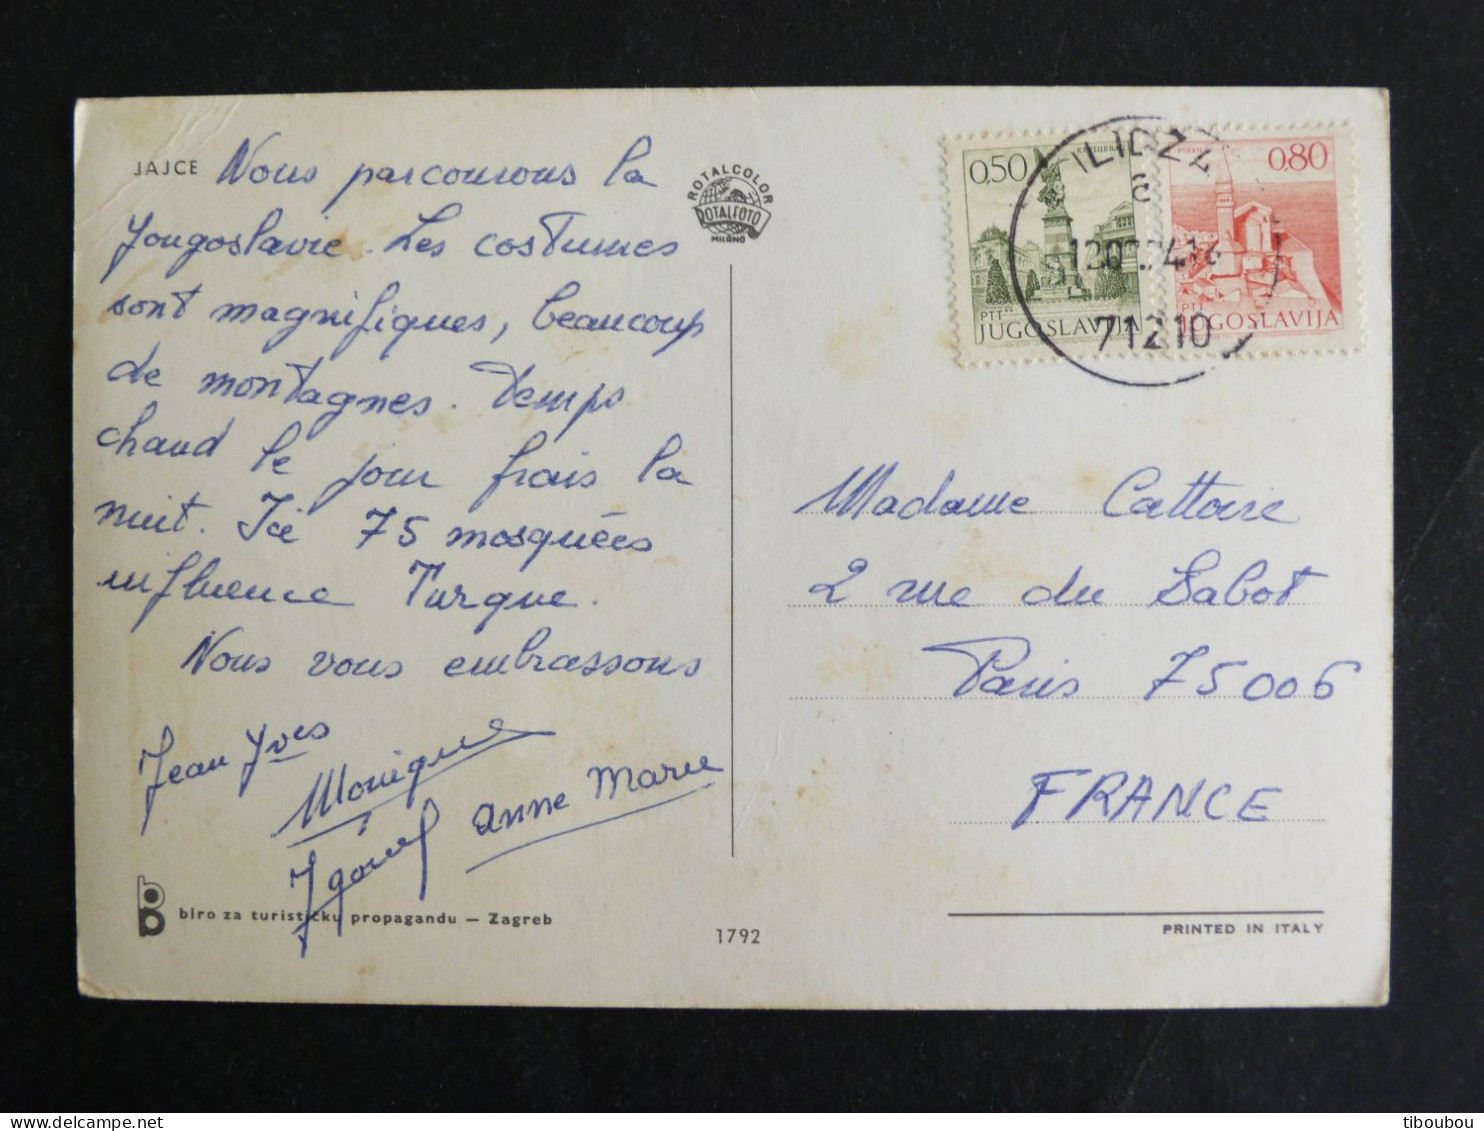 JAJCE
Nous parcourons la
Yougoslavie. Les costumes
sont magnifiques, beaucoup
de montagnes. Temps
chaud le jour frais la
nuit. Ici 75 mosquées
influence Turque.
Nous vous embrassons
Jean Yves
Monique
Anne Marie
biro za turističku propagandu — Zagreb
1792
ROTALCOLOR
ROTALFOTO
MILANO
0,50
PTT
JUGOSLAVIJA
PIRAN
0,80
PTT
JUGOSLAVIJA
ILIDZA
71210
Madame Cattoire
2 rue du Sabot
Paris 75006
FRANCE
PRINTED IN ITALY
tiboubou